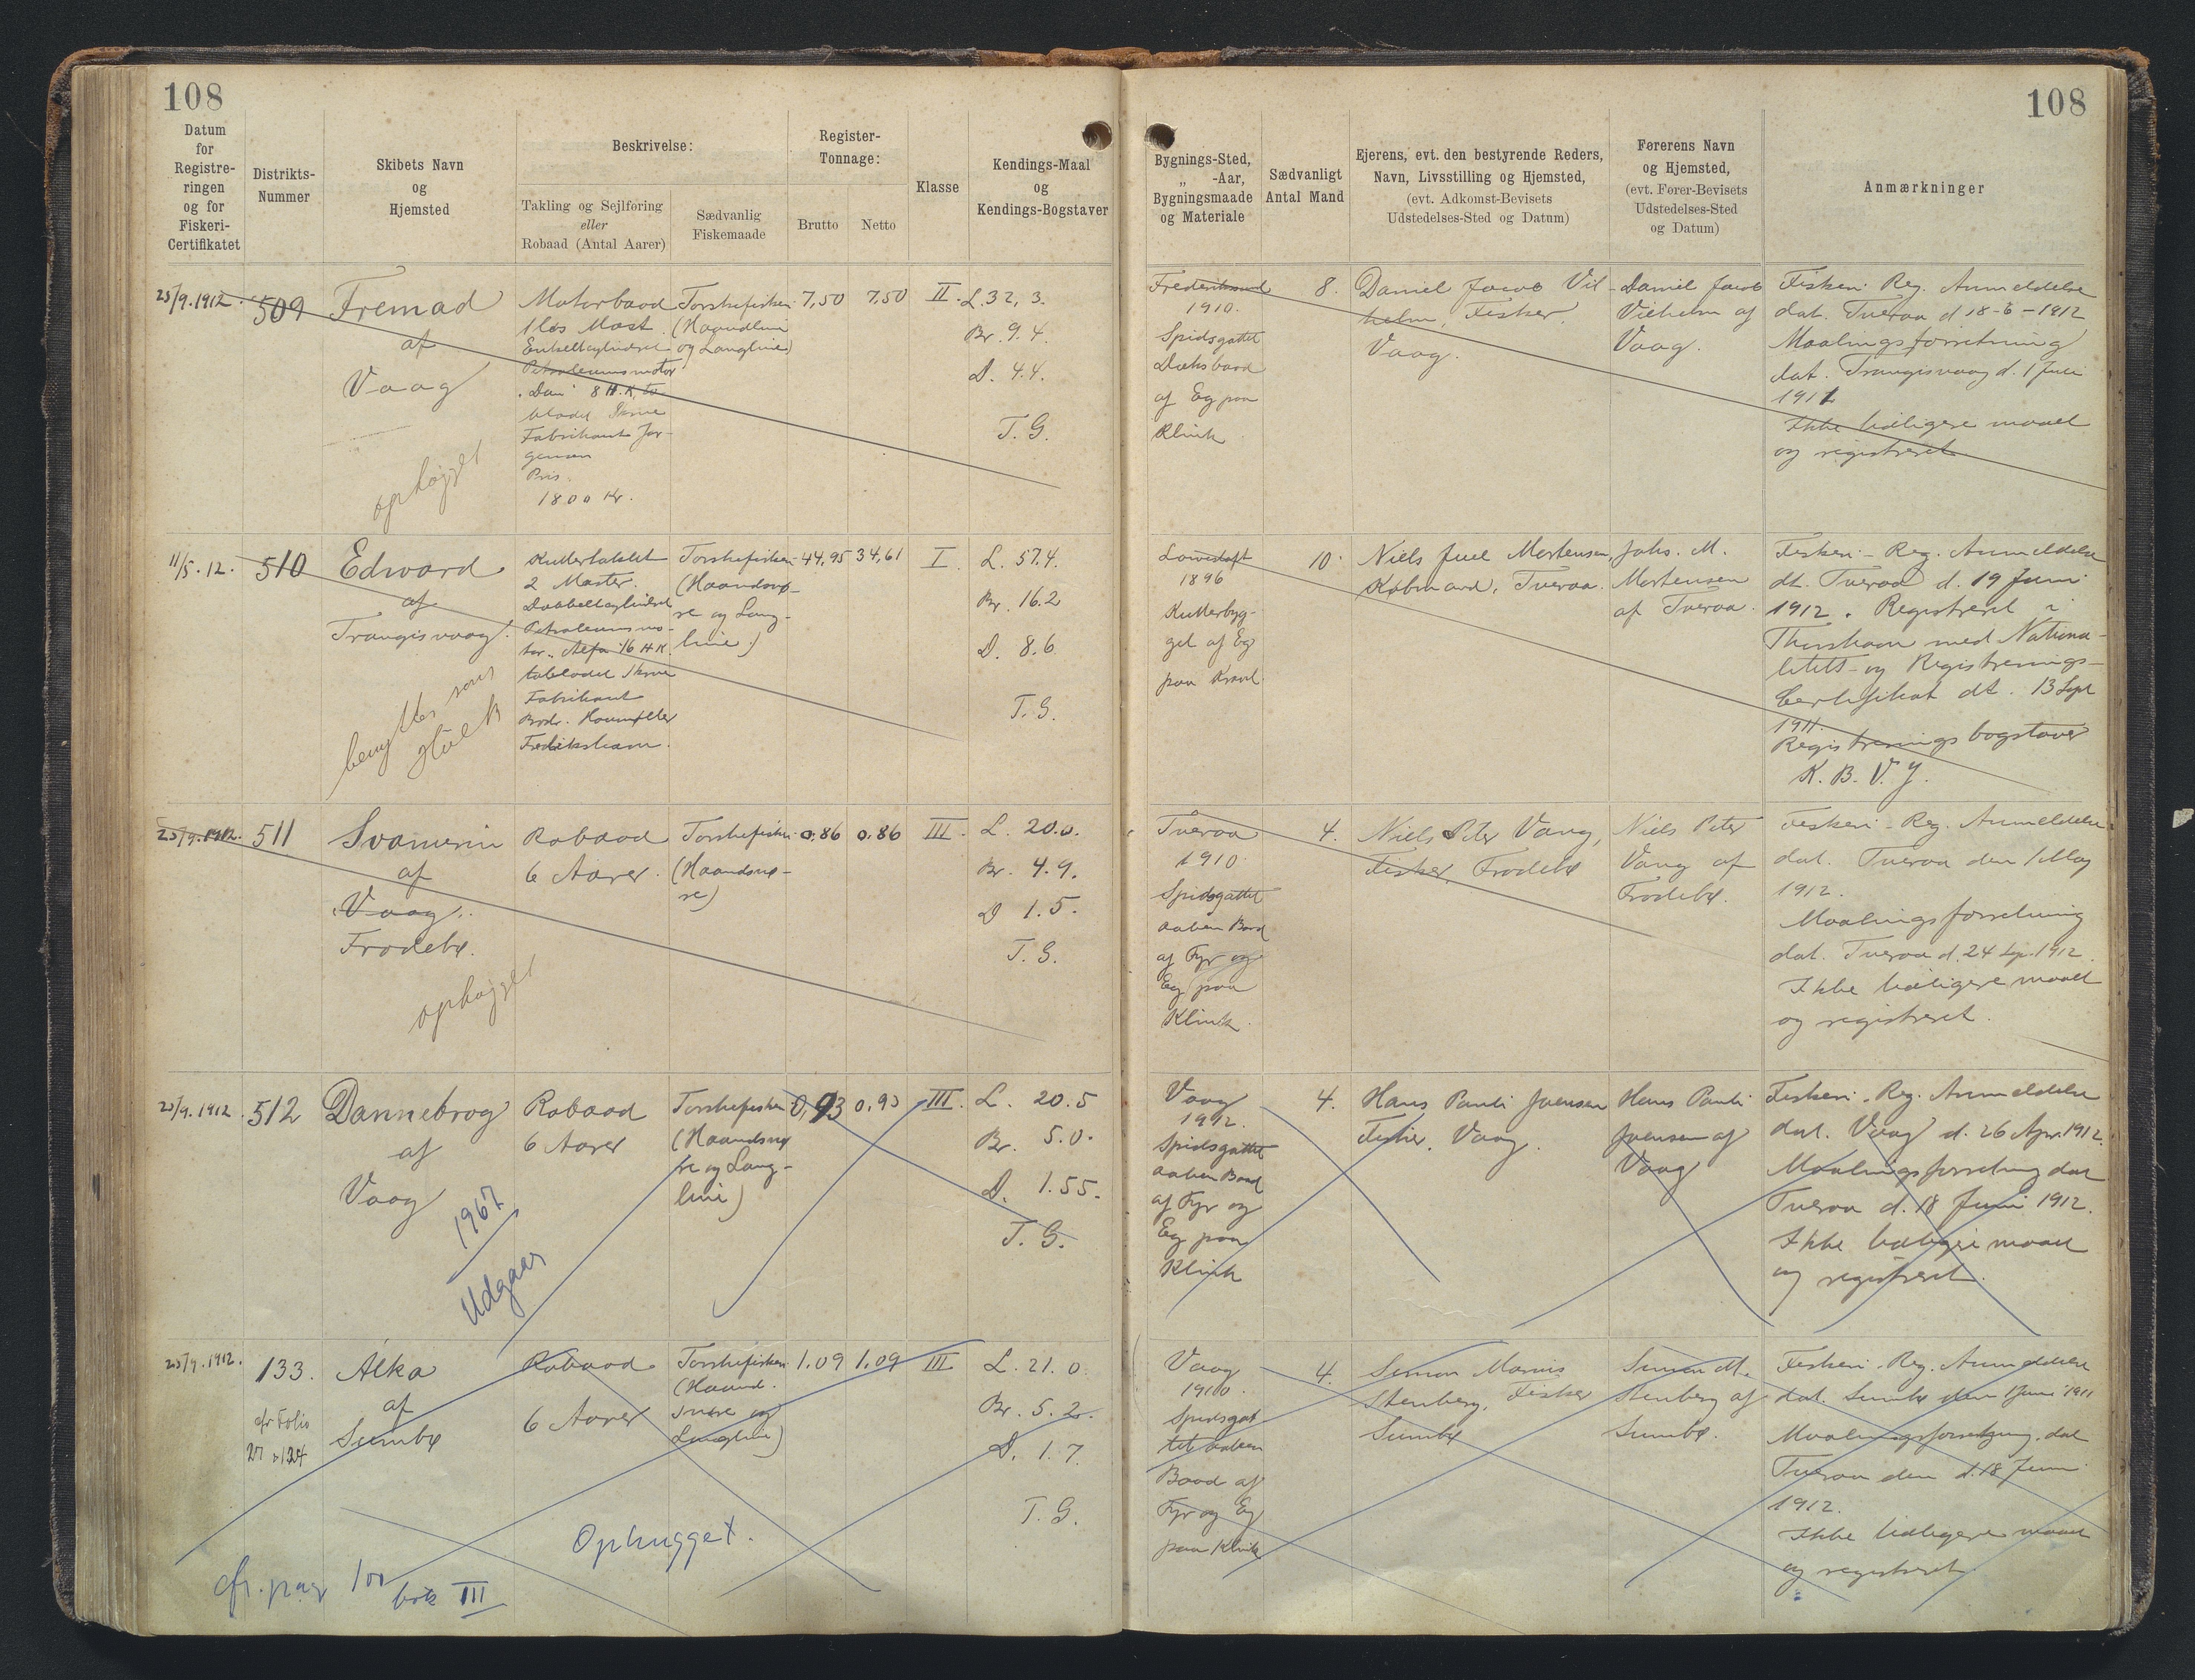 108
Datum
for
Registre-
ringen
og for
Fiskeri-
Certifikatet
Distrikts-
Nummer
Skibets Navn
og
Hjemsted
Beskrivelse:
Takling og Sejlføring
eller
Robaad (Antal Aarer)
Sædvanlig
Fiskemaade
Register-
Tonnage:
Brutto
Netto
Klasse
Kendings-Maal
og
Kendings-Bogstaver
108
Bygnings-Sted,
„ -Aar,
Bygningsmaade
og Materiale
Sædvanligt
Antal Mand
Ejerens, evt. den bestyrende Reders,
Navn, Livsstilling og Hjemsted,
(evt. Adkomst-Bevisets
Udstedelses-Sted og Datum)
Førerens Navn
og Hjemsted,
(evt. Fører-Bevisets
Udstedelses-Sted
og Datum)
Anmærkninger
25/9.1912.
509
Fremad
af
Vaag
ophøjget
Motorbaad
1 løs Mast.
Enkeltcylindret
Petroleumsmotor
"Dan" 8 H.K. to
bladet Skrue
Fabrikant Jør-
gensen
Pris.
1800 Kr.
Torskefiskeri
(Haandline
og Langline)
7,50
7,50
II.
L. 32, 3.
Br. 9.4.
D. 4.4.
T. G.
Frederikssund
1910.
Spidsgattet
Dæksbaad
af Eg paa
Klink
8.
Daniel Jacob Vil-
helm, Fisker,
Vaag.
Daniel Jacob
Vilhelm af
Vaag.
Fiskeri-Reg. Anmeldelse
dat. Tveraa d 18-6-1912
Maalingsforretning
dat. Trangisvaag d. 1 Juli
1911
Ikke tidligere maalt
og registreret
11/5.12.
510
Edward
af
Trangisvaag.
benyttes som
Hulk
Kuttertaklet
2 Master.
Dobbeltcylindret
Petroleumsmo-
tor "Alfa" 16 H.K.
tobladet Skrue
Fabrikant
Brdr. Houmøller
Fredrikshavn.
Torskefiskeri
(Haandsnø-
re og Lang-
line)
44,95
34,61
I.
L. 57.4.
Br. 16.2
D. 8.6
T. G.
Lowestoft
1896
Kutterbyg-
get af Eg
paa Kravel
10.
Niels Juel Mortensen,
Købmand, Tveraa.
Johs. M.
Mortensen
af Tveraa.
Fiskeri-Reg. Anmeldelse
dt. Tveraa d. 19 Juni
1912. Registreret i
Thorshavn med Nationa-
litets- og Registrerings-
Certifikat dt. 13 Sept
1911.
Registreringsbogstaver
K. B. V. J.
25/9.1912.
511
Svanerin
af
Vaag.
Frodebø.
ophøjget
Robaad
6 Aarer.
Torskefiskeri
(Haandsnø-
re)
0,86
0,86
III.
L. 20.0.
Br. 4.9.
D 1.5.
T. G.
Tveraa
1910.
Spidsgattet
aaben Baad
af Fyr og
Eg paa
Klink.
4.
Niels Peter Vang,
Fisker, Frodebø
Niels Peter
Vang af
Frodebø.
Fiskeri-Reg. Anmeldelse
dat. Tveraa den 1 Maj
1912.
Maalingsforretning
dat. Tveraa d. 24 Sep. 1912.
Ikke tidligere maalt
og registreret.
25/9.1912.
512
Dannebrog
af
Vaag
1967
Udgaar
Robaad
6 Aarer
Torskefiskeri
(Haandsnø
re og Lang-
line)
0,93
0,93
III.
L. 20.5
Br. 5.0.
D. 1.55.
T. G.
Vaag
1912.
Spidsgattet
aaben Baad
af Fyr og
Eg paa
Klink
4.
Hans Pauli Joensen
Fisker, Vaag.
Hans Pauli
Joensen af
Vaag
Fiskeri-Reg. Anmeldelse
dat. Vaag d. 26 Apr. 1912.
Maalingsforretning dat
Tveraa d. 18 Juni 1912.
Ikke tidligere maalt
og registreret.
25/9.1912.
133.
cfr Folio
27 & 124
Alka
af
Sumbø
Robaad
6 Aarer
Torskefiskeri
(Haand-
snøre og
Langline)
1.09
1.09
III
L. 21.0.
Br. 5.2.
D. 1.7.
T. G.
Ophugget.
cfr. pag 100
bok III
Vaag
1910.
Spidsgat
tet aaben
Baad af
Fyr og Eg
paa Klink
4.
Simon Marius
Stenberg, Fisker
Sumbø
Simon M.
Stenberg af
Sumbø.
Fiskeri-Reg. Anmeldelse
dat. Sumbø den 1 Juni 1911
Maalingsforretning dat
Tveraa den d. 18 Juni
1912.
Ikke tidligere maalt
og registreret.